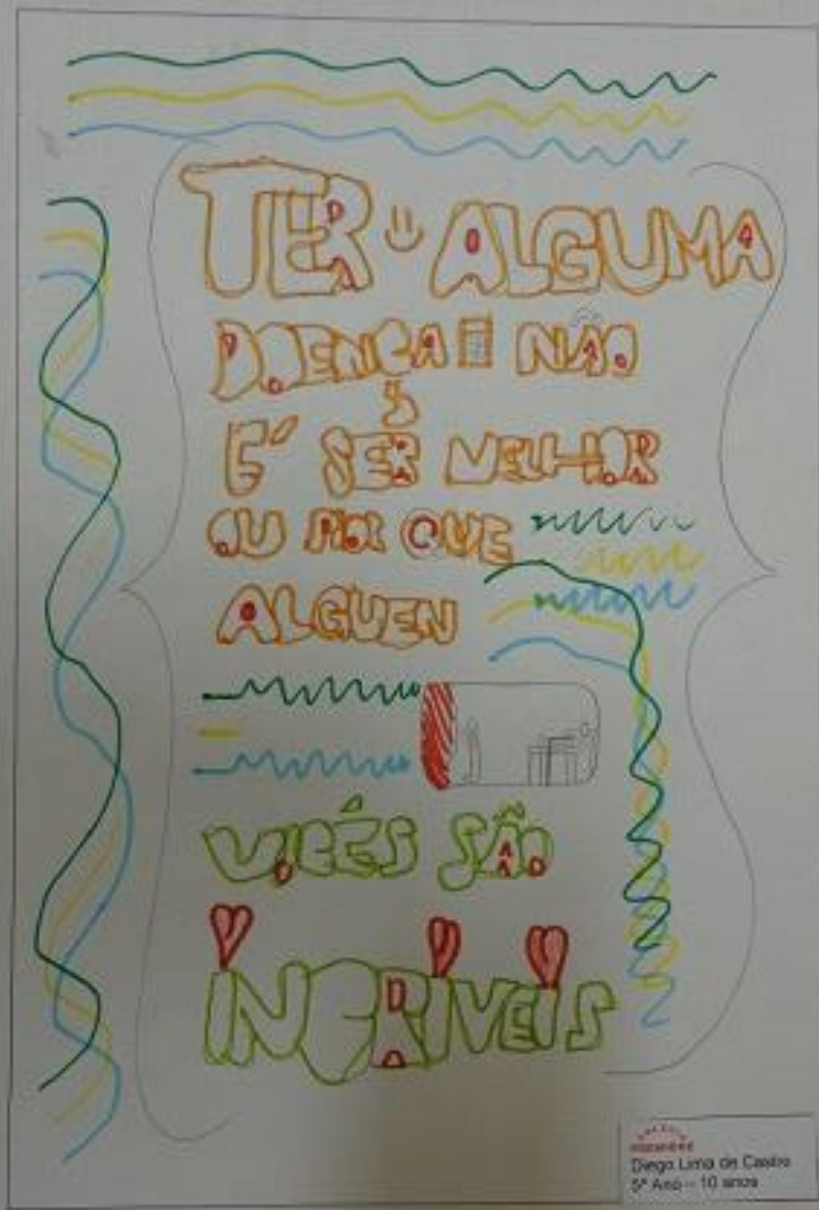 TER ALGUMA
DOENÇA NÃO
É SER MELHOR
OU PIOR QUE
ALGUEN
VOCÊS SÃO
INCRÍVEIS
Diego Lima de Castro
5º Ano - 10 anos